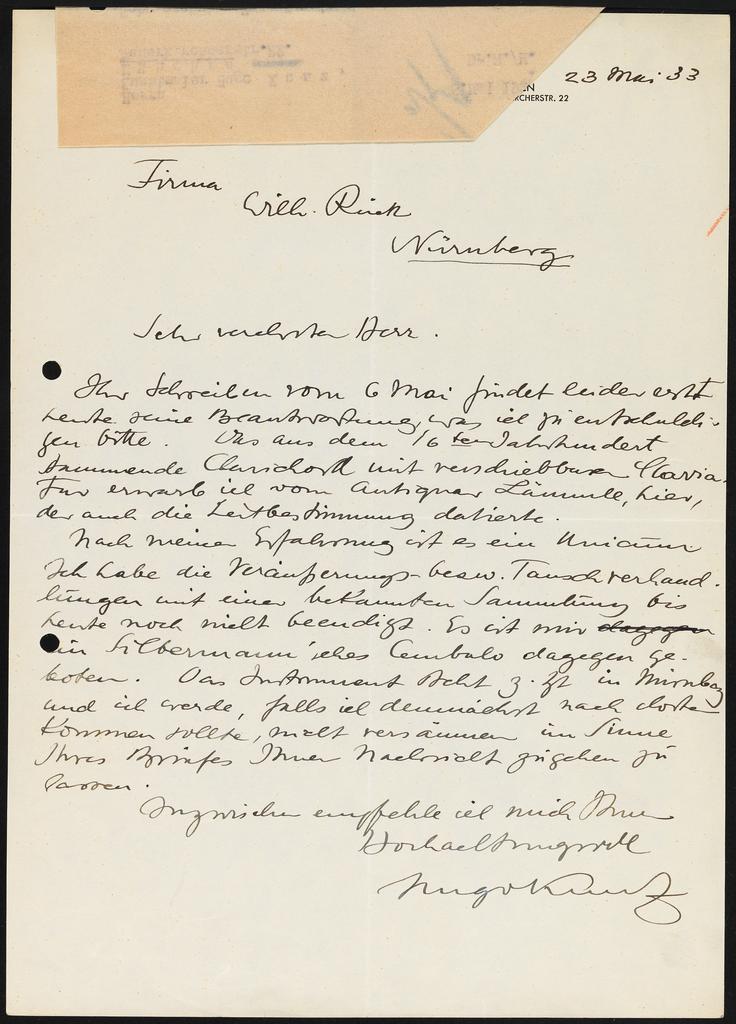 23 Mai 33
EN
RCHERSTR. 22
Firma
Wilh. Rück
Nürnberg
Sehr verehrter Herr.
Ihr Schreiben vom 6 Mai findet leider erst
heute seine Beantwortung, was ich zu entschuldi-
gen bitte. Das aus dem 16ten Jahrhundert
stammende Clavichord mit verschiebbarer Clavia-
tur erwarb ich vom Antiquar Lämmle, hier,
der auch die Zeitbestimmung datierte.
Nach meiner Erfahrung ist es ein Unicum
Ich habe die Veräußerungs- besw. Tauschverhand-
lungen mit einer bekannten Sammlung bis
heute noch nicht beendigt. Es ist mir dagegen
ein Silbermann'sches Cembalo dagegen ge-
boten. Das Instrument steht z. Zt in Nürnberg
und ich werde, falls ich demnächst nach dorten
kommen sollte, nicht versäumen im Sinne
Ihres Briefes Ihnen Nachricht zugehen zu
lassen.
Inzwischen empfehle ich mich Ihnen
Hochachtungsvoll
Hugo Kunz